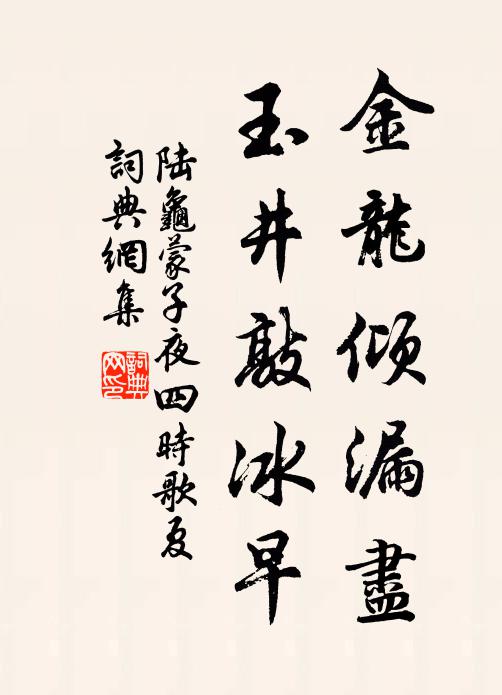 金龍傾漏盡
玉井敲冰早
陸龜蒙子夜四時歌夏
詞典網集
詞典网印